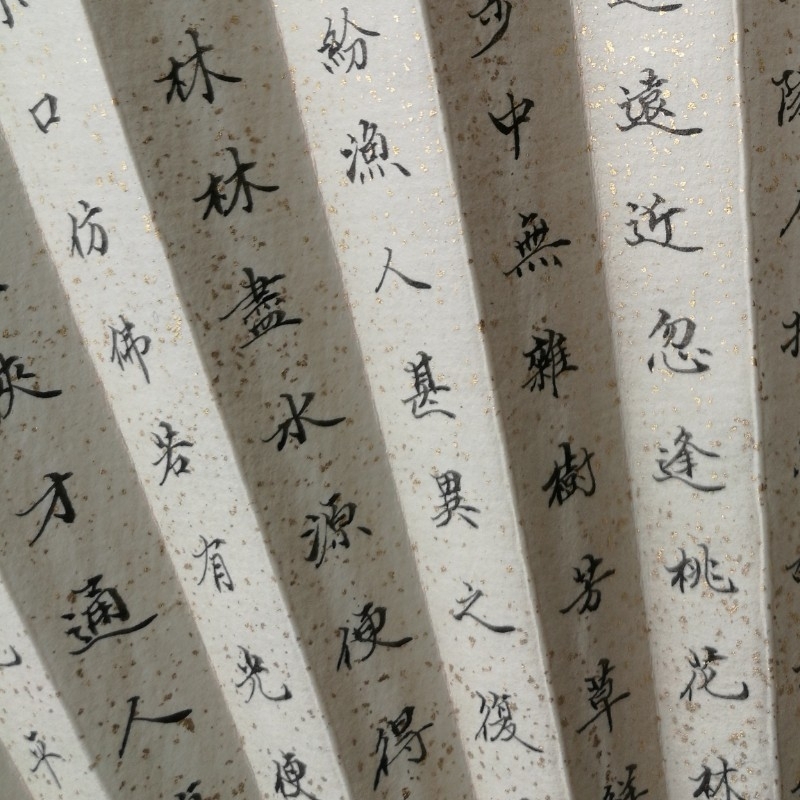 遠近忽逢桃花林
中無雜樹芳草
紛漁人甚異之復
林林盡水源便得
口仿佛若有光便
才通人
平